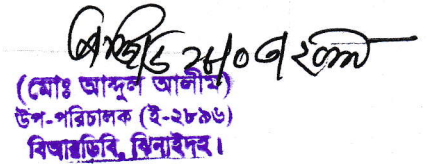 (মোঃ আব্দুল আলীম)
উপ-পরিচালক (ই-২৮৯৬)
বিআরডিবি, ঝিনাইদহ।